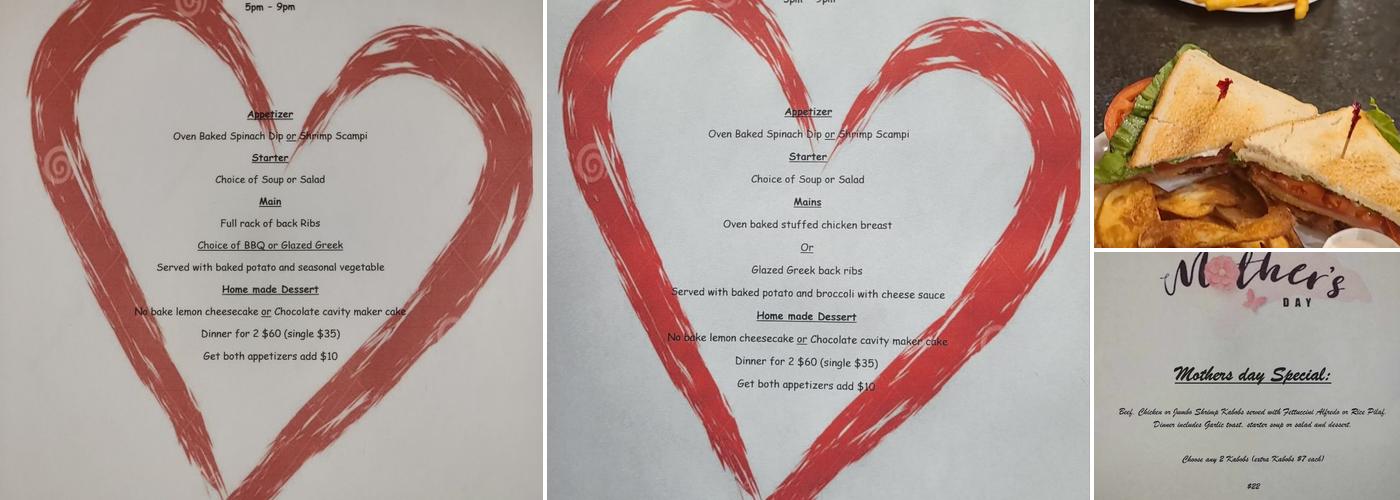 5pm - 9pm
Appetizer
Oven Baked Spinach Dip or Shrimp Scampi
Starter
Choice of Soup or Salad
Main
Full rack of back Ribs
Choice of BBQ or Glazed Greek
Served with baked potato and seasonal vegetable
Home made Dessert
No bake lemon cheesecake or Chocolate cavity maker cake
Dinner for 2 $60 (single $35)
Get both appetizers add $10
5pm - 9pm
Appetizer
Oven Baked Spinach Dip or Shrimp Scampi
Starter
Choice of Soup or Salad
Mains
Oven baked stuffed chicken breast
Or
Glazed Greek back ribs
Served with baked potato and broccoli with cheese sauce
Home made Dessert
No bake lemon cheesecake or Chocolate cavity maker cake
Dinner for 2 $60 (single $35)
Get both appetizers add $10
Mother's
DAY
Mothers day Special:
Beef, Chicken or Jumbo Shrimp Kabobs served with Fettuccini Alfredo or Rice Pilaf.
Dinner includes Garlic toast, starter soup or salad and dessert.
Choose any 2 Kabobs (extra Kabobs $7 each)
$22